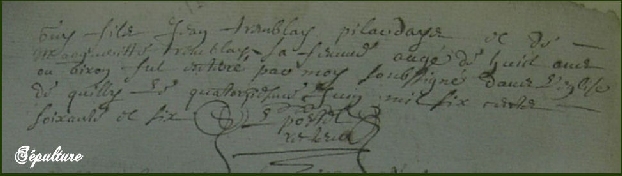 Guy fils Jean tremblay pilardaye et de
Margueritte tremblay sa femme aagé de huit ans
ou viron fut enterré par moy soubsigné dans l'eglise
de quilly le quatorziesme Juin mil six cents
soixante et six
Sépulture